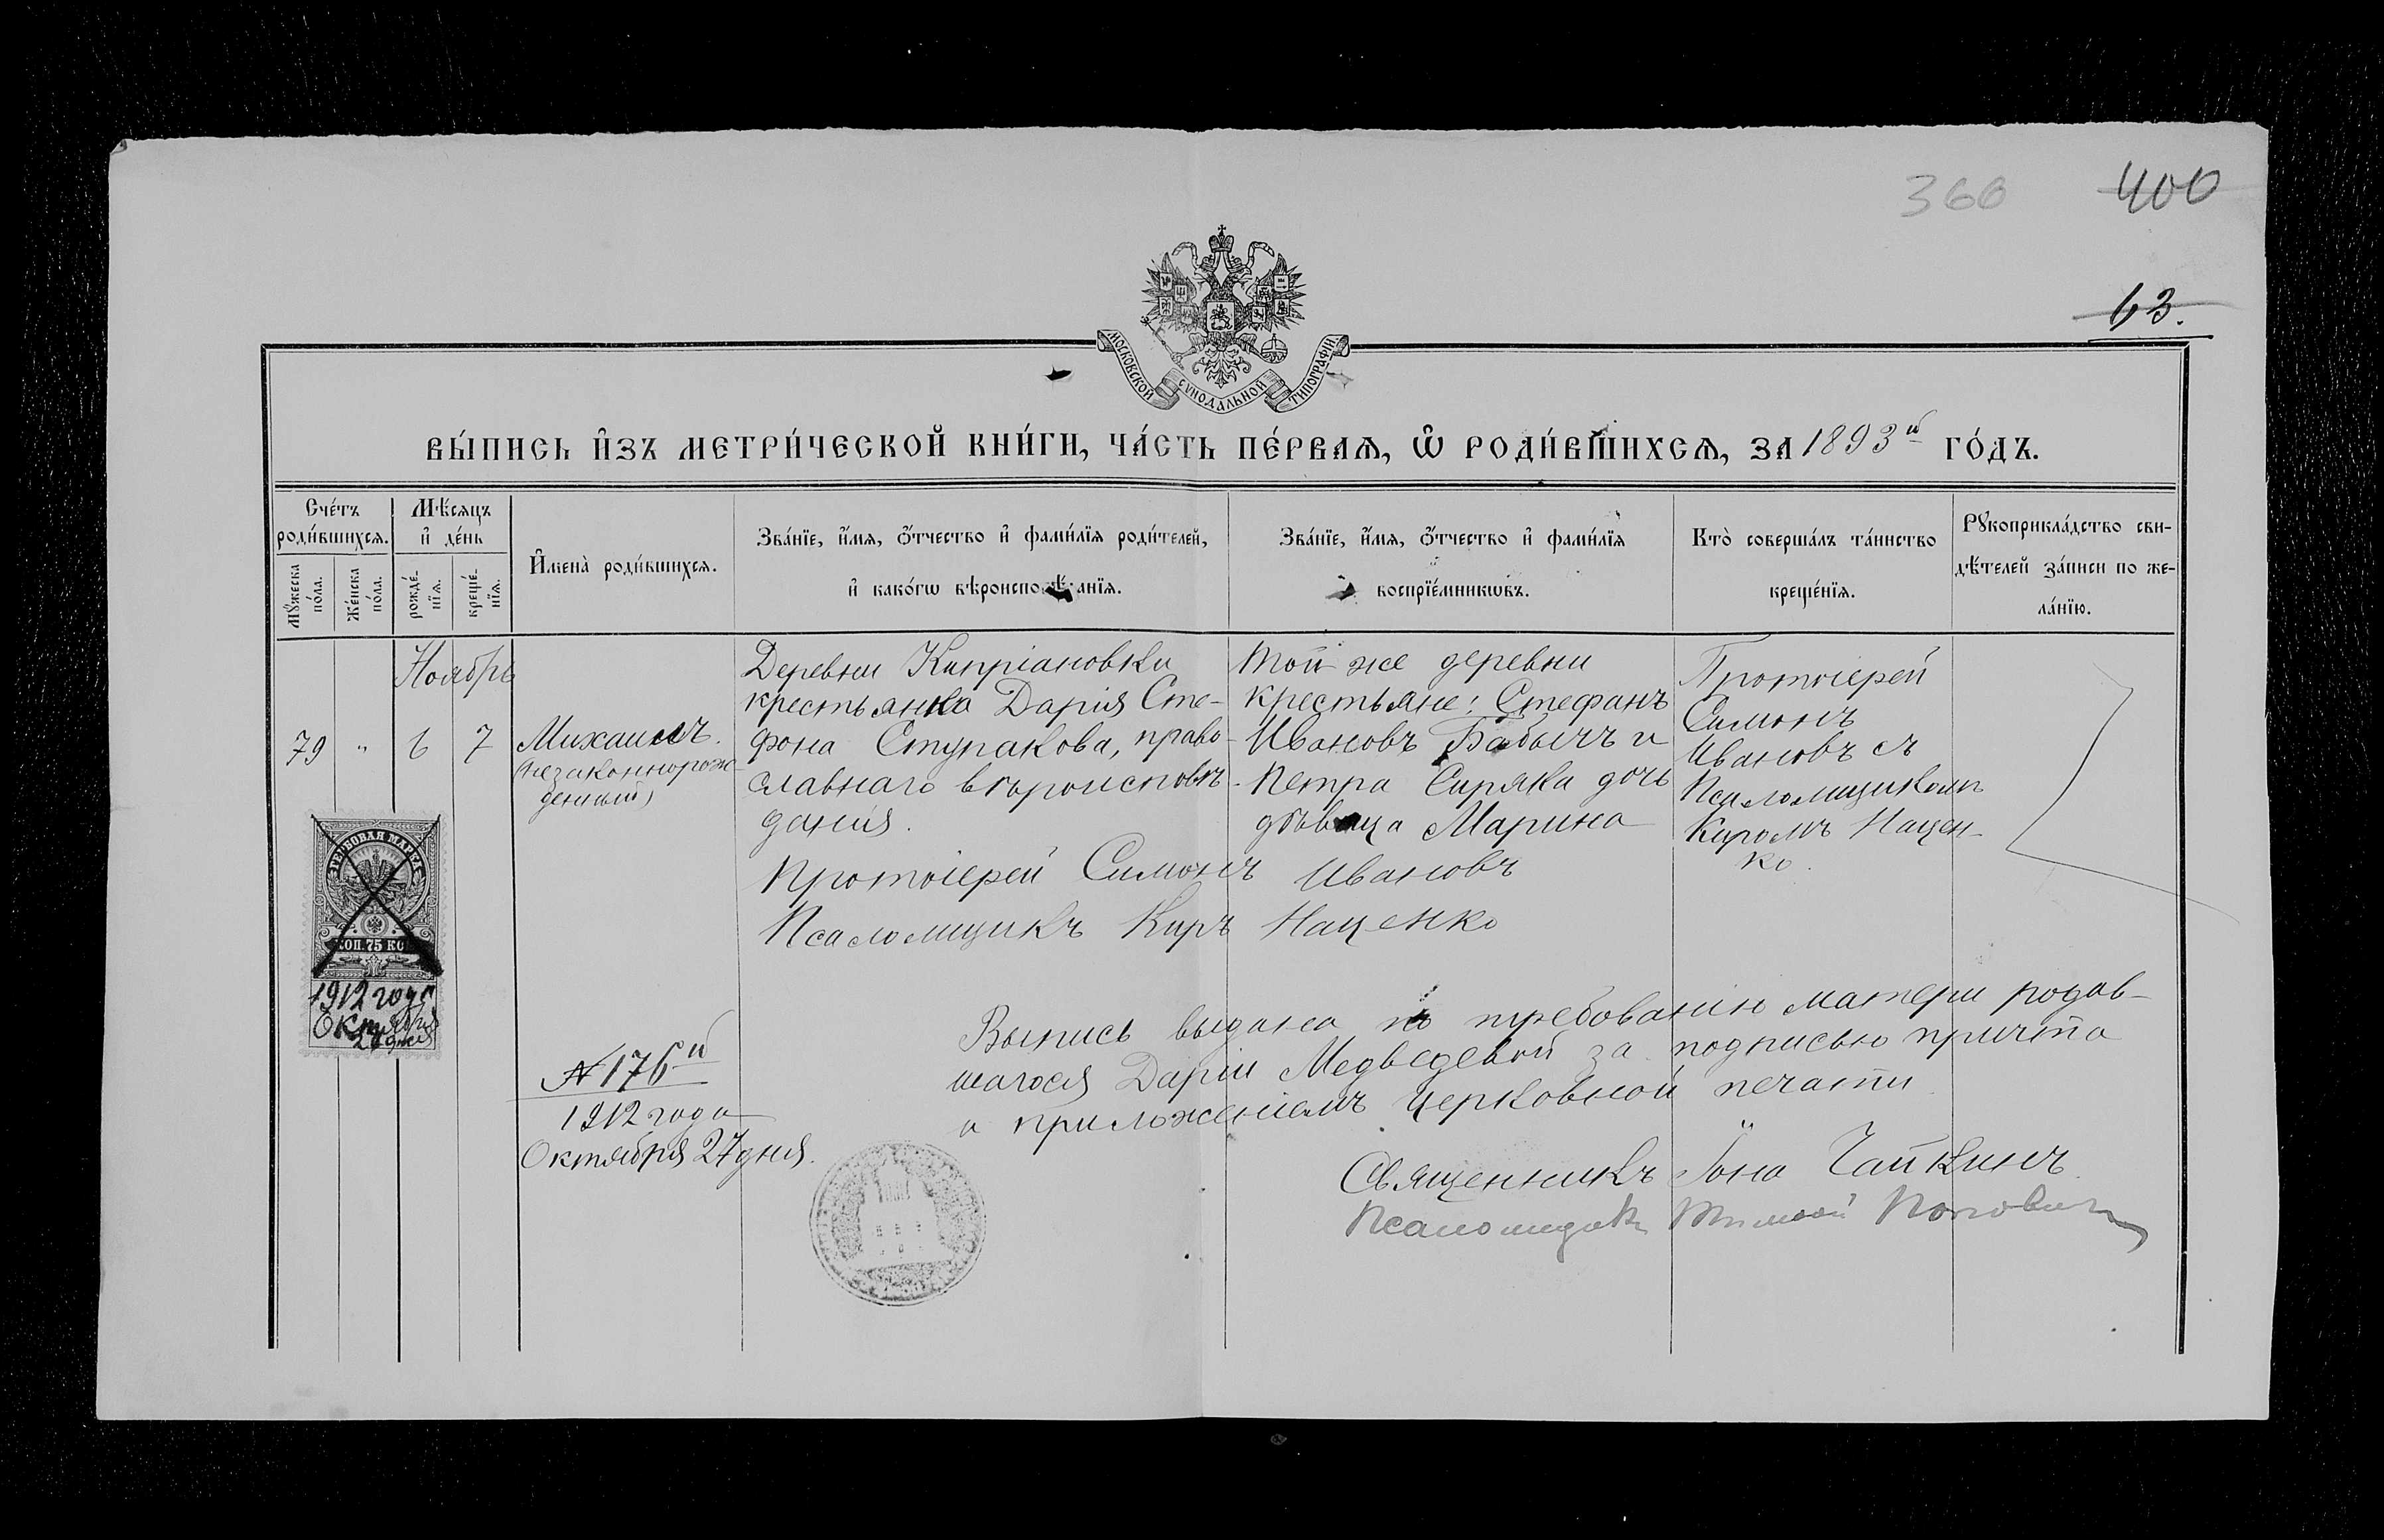 360 400
63.
МОСКОВСКОЙ СУНОДАЛЬНОЙ ТИПОГРАФІИ
ВЫ́ПИСЬ И҆ЗЪ МЕТРИ́ЧЕСКОЙ КНИ́ГИ, ЧА́СТЬ ПЕ́РВАѦ, Ѡ҆ РОДИ́ВШИХСѦ, ЗА 1893й ГО́ДЪ.
Сче́тъ роди́вшихсѧ.
Мꙋ́жеска по́ла.
Же́нска по́ла.
Мѣ́сѧцъ и҆ де́нь
рожде́нїѧ.
креще́нїѧ.
И҆мена̀ роди́вшихсѧ.
Зва́нїе, и҆́мѧ, ѻ҆́тчество и҆ фами́лїѧ роди́телей,
и҆ како́гѡ вѣроиспо анїѧ.
Зва́нїе, и҆́мѧ, ѻ҆́тчество и҆ фами́лїѧ
воспрїе́мникѡвъ.
Кто̀ соверша́лъ та́инство
креще́нїѧ.
Рꙋкоприкла́дство сви-
дѣ́телей за́писи по же-
ла́нїю.
Ноябрь
79 " 6 7
Михаилъ.
(незаконнорож
денный)
Деревни Кипріановки
крестьянка Дарія Сте-
фона Ступакова, право-
славнаго вѣроисповѣ-
данія.
Той же деревни
крестьяне: Стефанъ
Ивановъ Бабычъ и
Петра Сиряка дочь
дѣвица Марина
Протоіерей
Симонъ
Ивановъ съ
Псаломщикомъ
Киромъ Нацен-
ко.
Протоіерей Симонъ Ивановъ
Псаломщикъ Киръ Наценко
ГЕРБОВАЯ МАРКА
КОП. 75 КОП.
1912 года
Октября
27 дня
№ 176й
1912 года
Октября 27 дня.
Выпись выдана по требованію матери родив-
шагося Даріи Медведевой за подписью причта
и приложеніемъ церковной печати
Священникъ Іона Чайкинъ.
Псаломщикъ Тимофей Поповичъ